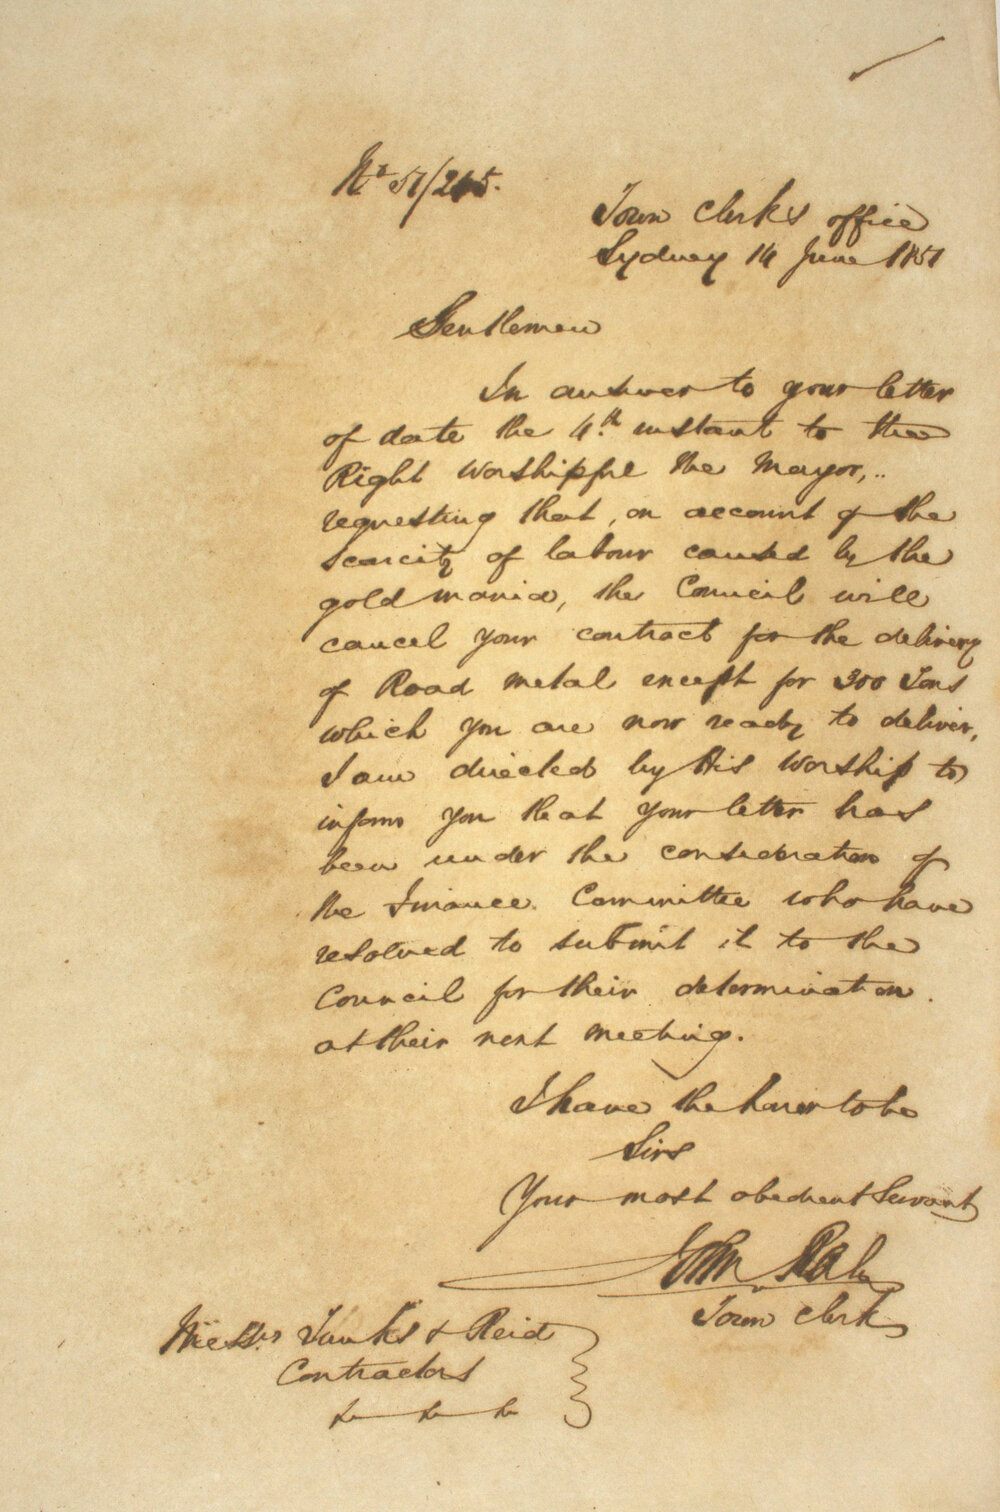 No 51/215.
Town Clerks office
Sydney 14 June 1851
Gentlemen
In answer to your letter
of date the 4th instant to the
Right Worshipful the Mayor,
requesting that, on account of the
scarcity of labour caused by the
gold mania, the Council will
cancel your contract for the delivery
of Road metal except for 300 Tons
which you are now ready to deliver,
I am directed by His Worship to
inform you that your letter has
been under the consideration of
the Finance Committee who have
resolved to submit it to the
Council for their determination
at their next meeting.
I have the honor to be
Sirs
Your most obedient Servant
John
Town Clerk
Messrs & Reid
Contractors